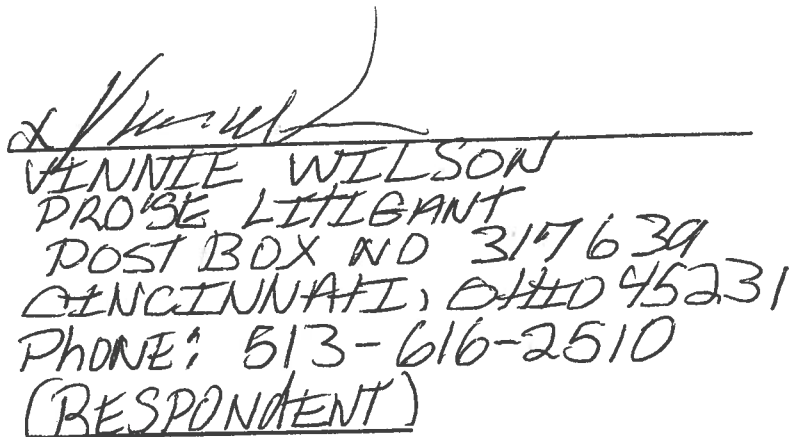 X
VINNIE WILSON
PRO'SE LITIGANT
POST BOX NO 317639
CINCINNATI, OHIO 45231
PHONE: 513-616-2510
(RESPONDENT)